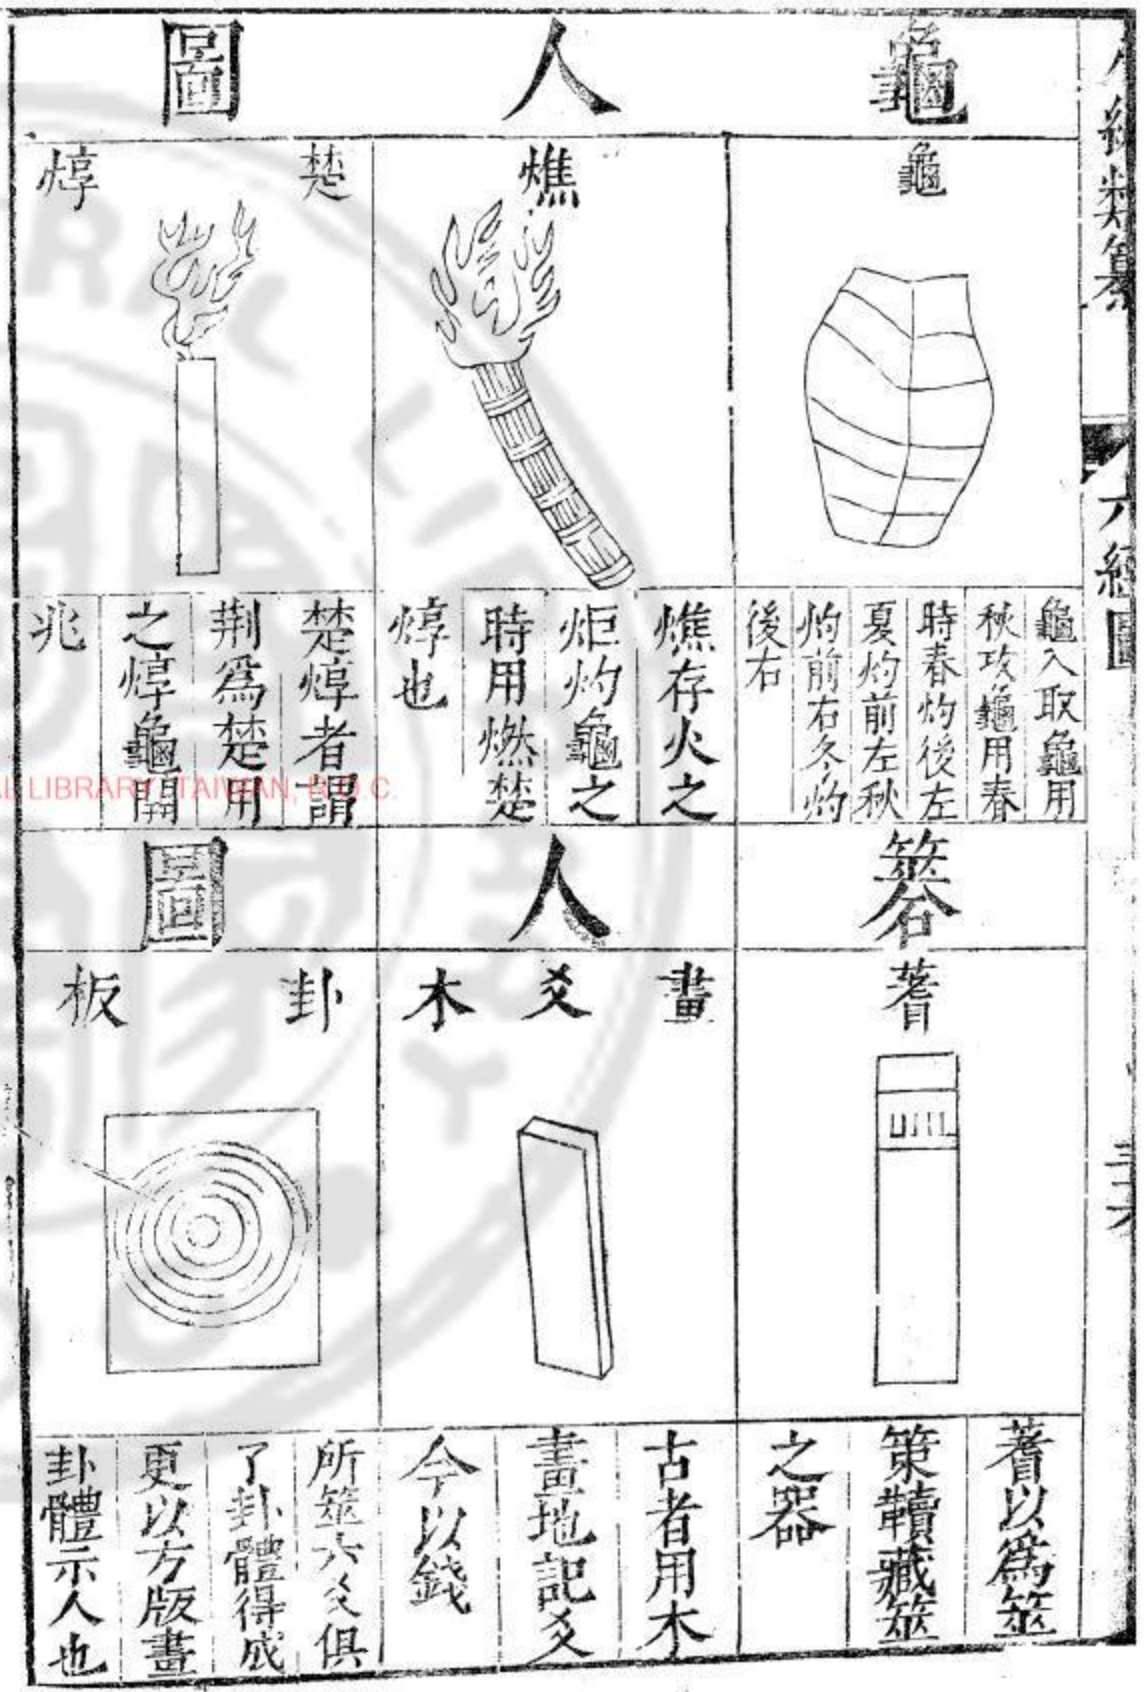 經類纂
六經圖
三六
龜人圖
龜
龜人取龜用
秋攻龜用春
時春灼後左
夏灼前左秋
灼前右冬灼
後右
燋
燋存火之
炬灼龜之
時用燃楚
焞也
楚焞
楚焞者謂
荆爲楚用
之焞龜開
兆
人圖
蓍
蓍以爲筮
策韇藏筮
之器
畫爻木
古者用木
畫地記爻
今以錢
卦板
所筮六爻俱
了卦體得成
更以方版畫
卦體示人也
AL LIBRARY, TAIWAN, R.O.C.